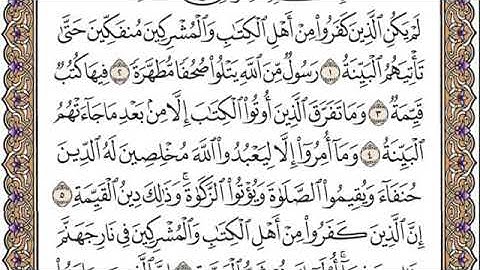 لَمْ يَكُنِ ٱلَّذِينَ كَفَرُوا۟ مِنْ أَهْلِ ٱلْكِتَٰبِ وَٱلْمُشْرِكِينَ مُنفَكِّينَ حَتَّىٰ
تَأْتِيَهُمُ ٱلْبَيِّنَةُ ١ رَسُولٌ مِّنَ ٱللَّهِ يَتْلُوا۟ صُحُفًا مُّطَهَّرَةً ٢ فِيهَا كُتُبٌ
قَيِّمَةٌ ٣ وَمَا تَفَرَّقَ ٱلَّذِينَ أُوتُوا۟ ٱلْكِتَٰبَ إِلَّا مِنۢ بَعْدِ مَا جَآءَتْهُمُ
ٱلْبَيِّنَةُ ٤ وَمَآ أُمِرُوٓا۟ إِلَّا لِيَعْبُدُوا۟ ٱللَّهَ مُخْلِصِينَ لَهُ ٱلدِّينَ
حُنَفَآءَ وَيُقِيمُوا۟ ٱلصَّلَوٰةَ وَيُؤْتُوا۟ ٱلزَّكَوٰةَ ۚ وَذَٰلِكَ دِينُ ٱلْقَيِّمَةِ ٥
إِنَّ ٱلَّذِينَ كَفَرُوا۟ مِنْ أَهْلِ ٱلْكِتَٰبِ وَٱلْمُشْرِكِينَ فِى نَارِ جَهَنَّمَ